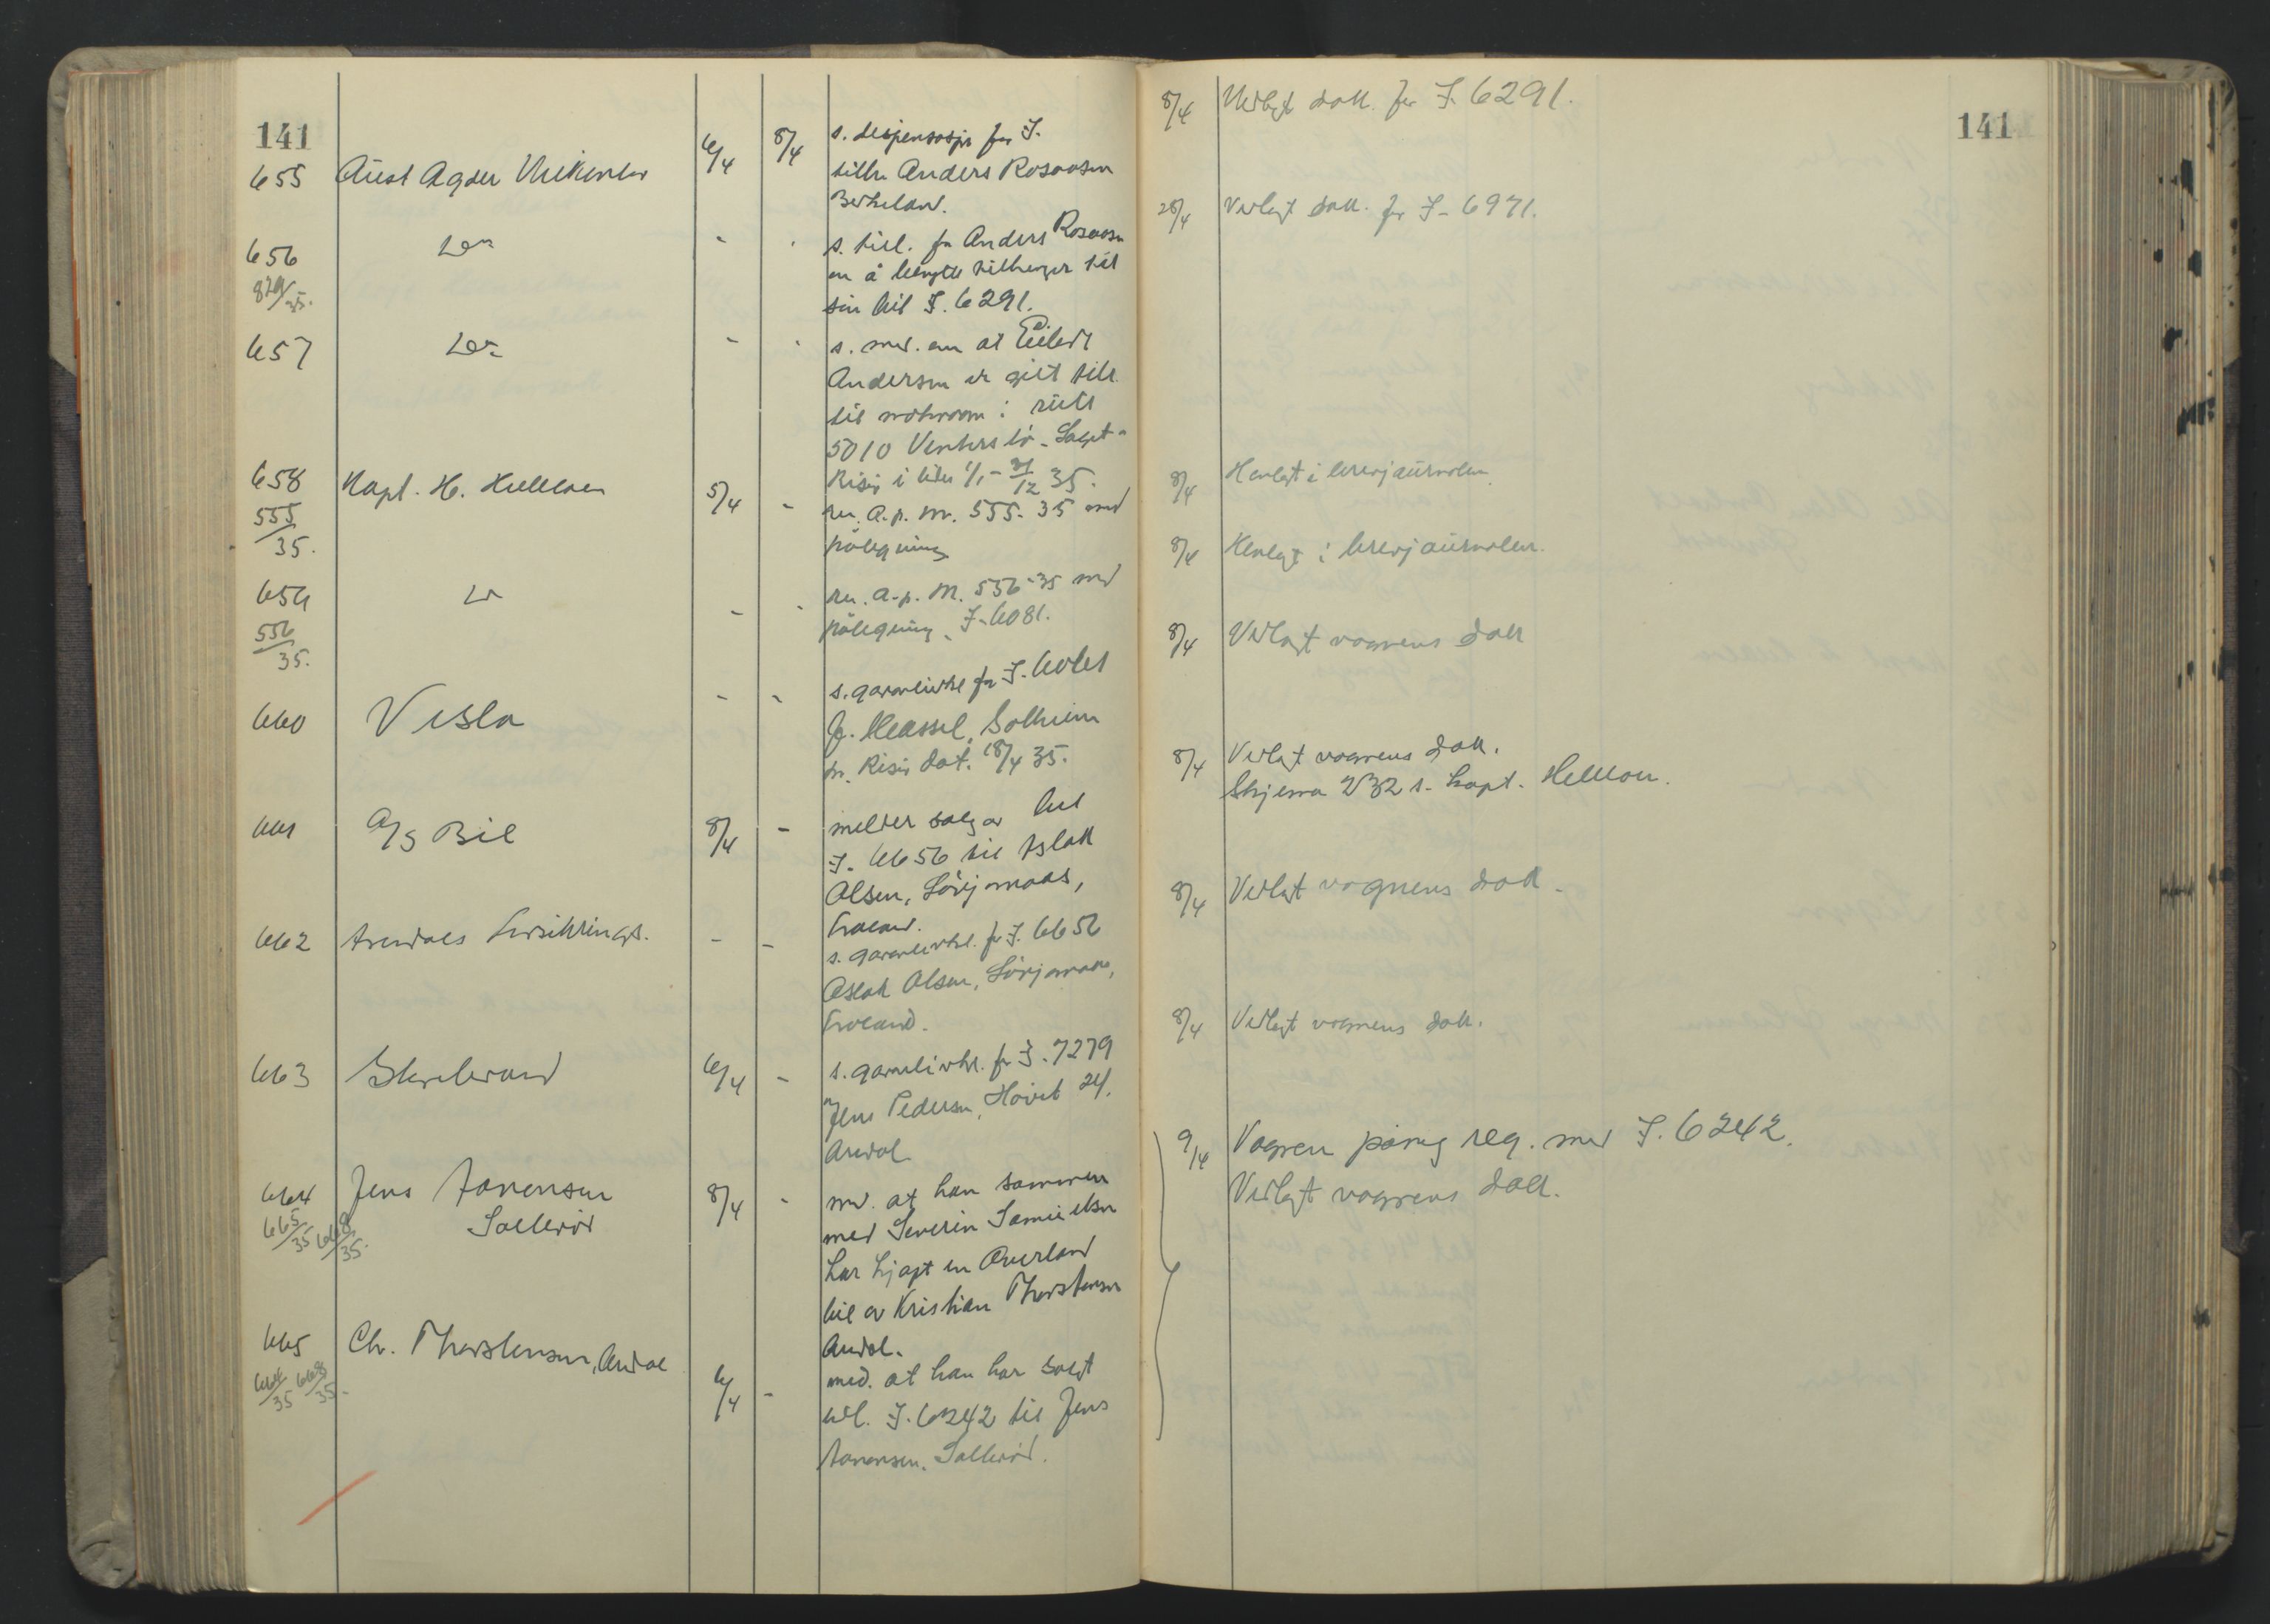 141
655 Aust Agder Veikontor 6/4 8/4 s. dispensasjn for I.
tilh. Anders Rosaasen
Birkeland.
656 Do - - s. till. for Anders Rosaasen
829/35. om å benytte tilhenger til
sin bil I. 6291.
657 Do - - s. med. om at Eilert
Andersen er gitt till.
til motorvogn i rute
5010
Risør i tiden 1/1 - 31/12 35.
658 Kapt. H. 5/4 - re. A.p. nr. 555-35 med
555/35. påtegning
659 Do - - re. A.p. nr. 556-35 med
556/35. påtegning. I-6081.
660 Vesla - - s. garantierkl. for I.
Solheim
pr. Risør dat. 18/4 35.
661 A/S Bil 8/4 - melder salg av bil
I. 6656 til Aslak
Olsen,
Froland.
662 Arendals Forsikrings. - - s. garantierkl. for I. 6656
Aslak Olsen,
Froland.
663 Storebrand 6/4 - s. garantierkl. for I. 7279
Jens Pedersen, 24,
Arendal
664 Jens Aanensen 8/4 - med. at han sammen
665/35 668/35. Salterød med Severin Samuelsen
har kjøpt en Overland
bil av Kristian Thorstensen
Arendal.
665 Chr. Thorstensen, Arendal 6/4 - med. at han har solgt
664/35 668/35. bil. I. 6242 til Jens
Aanensen. Salterød.
141
8/4 Vedlagt dok. for I. 6291.
28/4 Vedlagt dok. for I- 6971.
8/4 Henlagt i brevjournalen.
8/4 Henlagt i brevjournalen.
8/4 Vedlagt vognens dok
8/4 Vedlagt vognens dok.
Skjema 232 s. kapt.
8/4 Vedlagt vognens dok.
8/4 Vedlagt vognens dok.
9/4 Vognen påny reg. med I. 6242.
Vedlagt vognens dok.